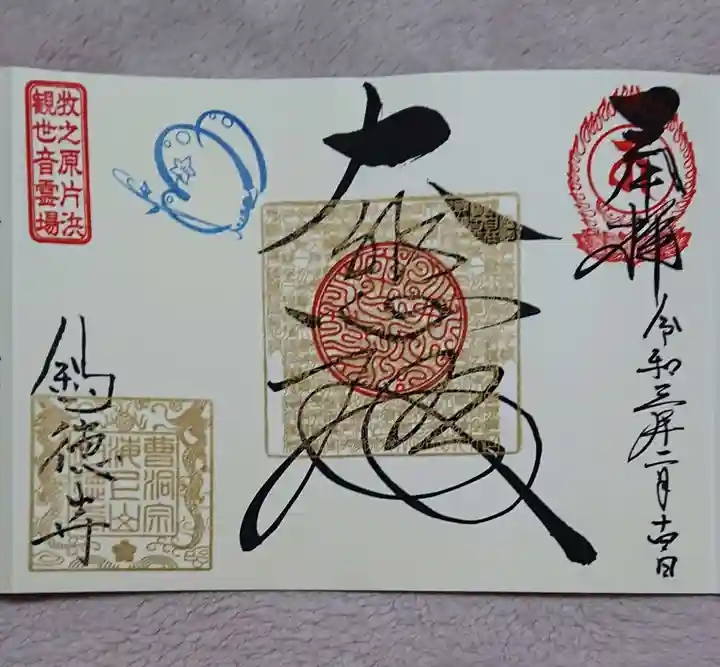 奉拝
令和三年二月十四日
大悲殿
牧之原片浜
観世音霊場
釣徳寺
曹洞宗